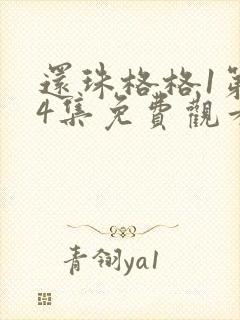 還珠格格1第
4集免費觀看
青翎ya1